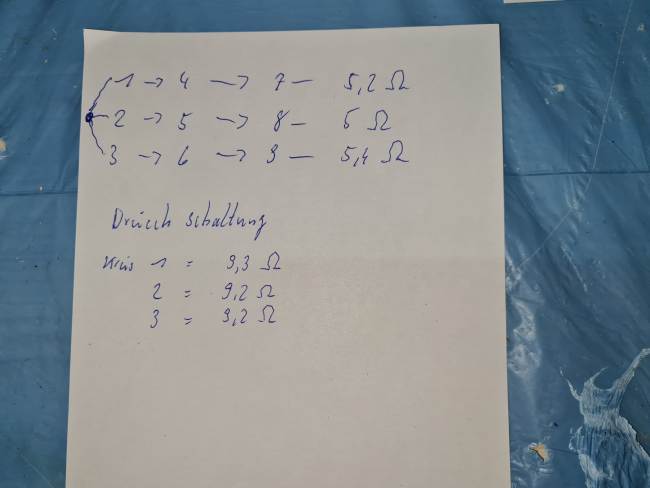 1 → 4 → 7 – 5,2 Ω
2 → 5 → 8 – 5 Ω
3 → 6 → 9 – 5,4 Ω
schaltung
1 = 9,3 Ω
2 = 9,2 Ω
3 = 9,2 Ω